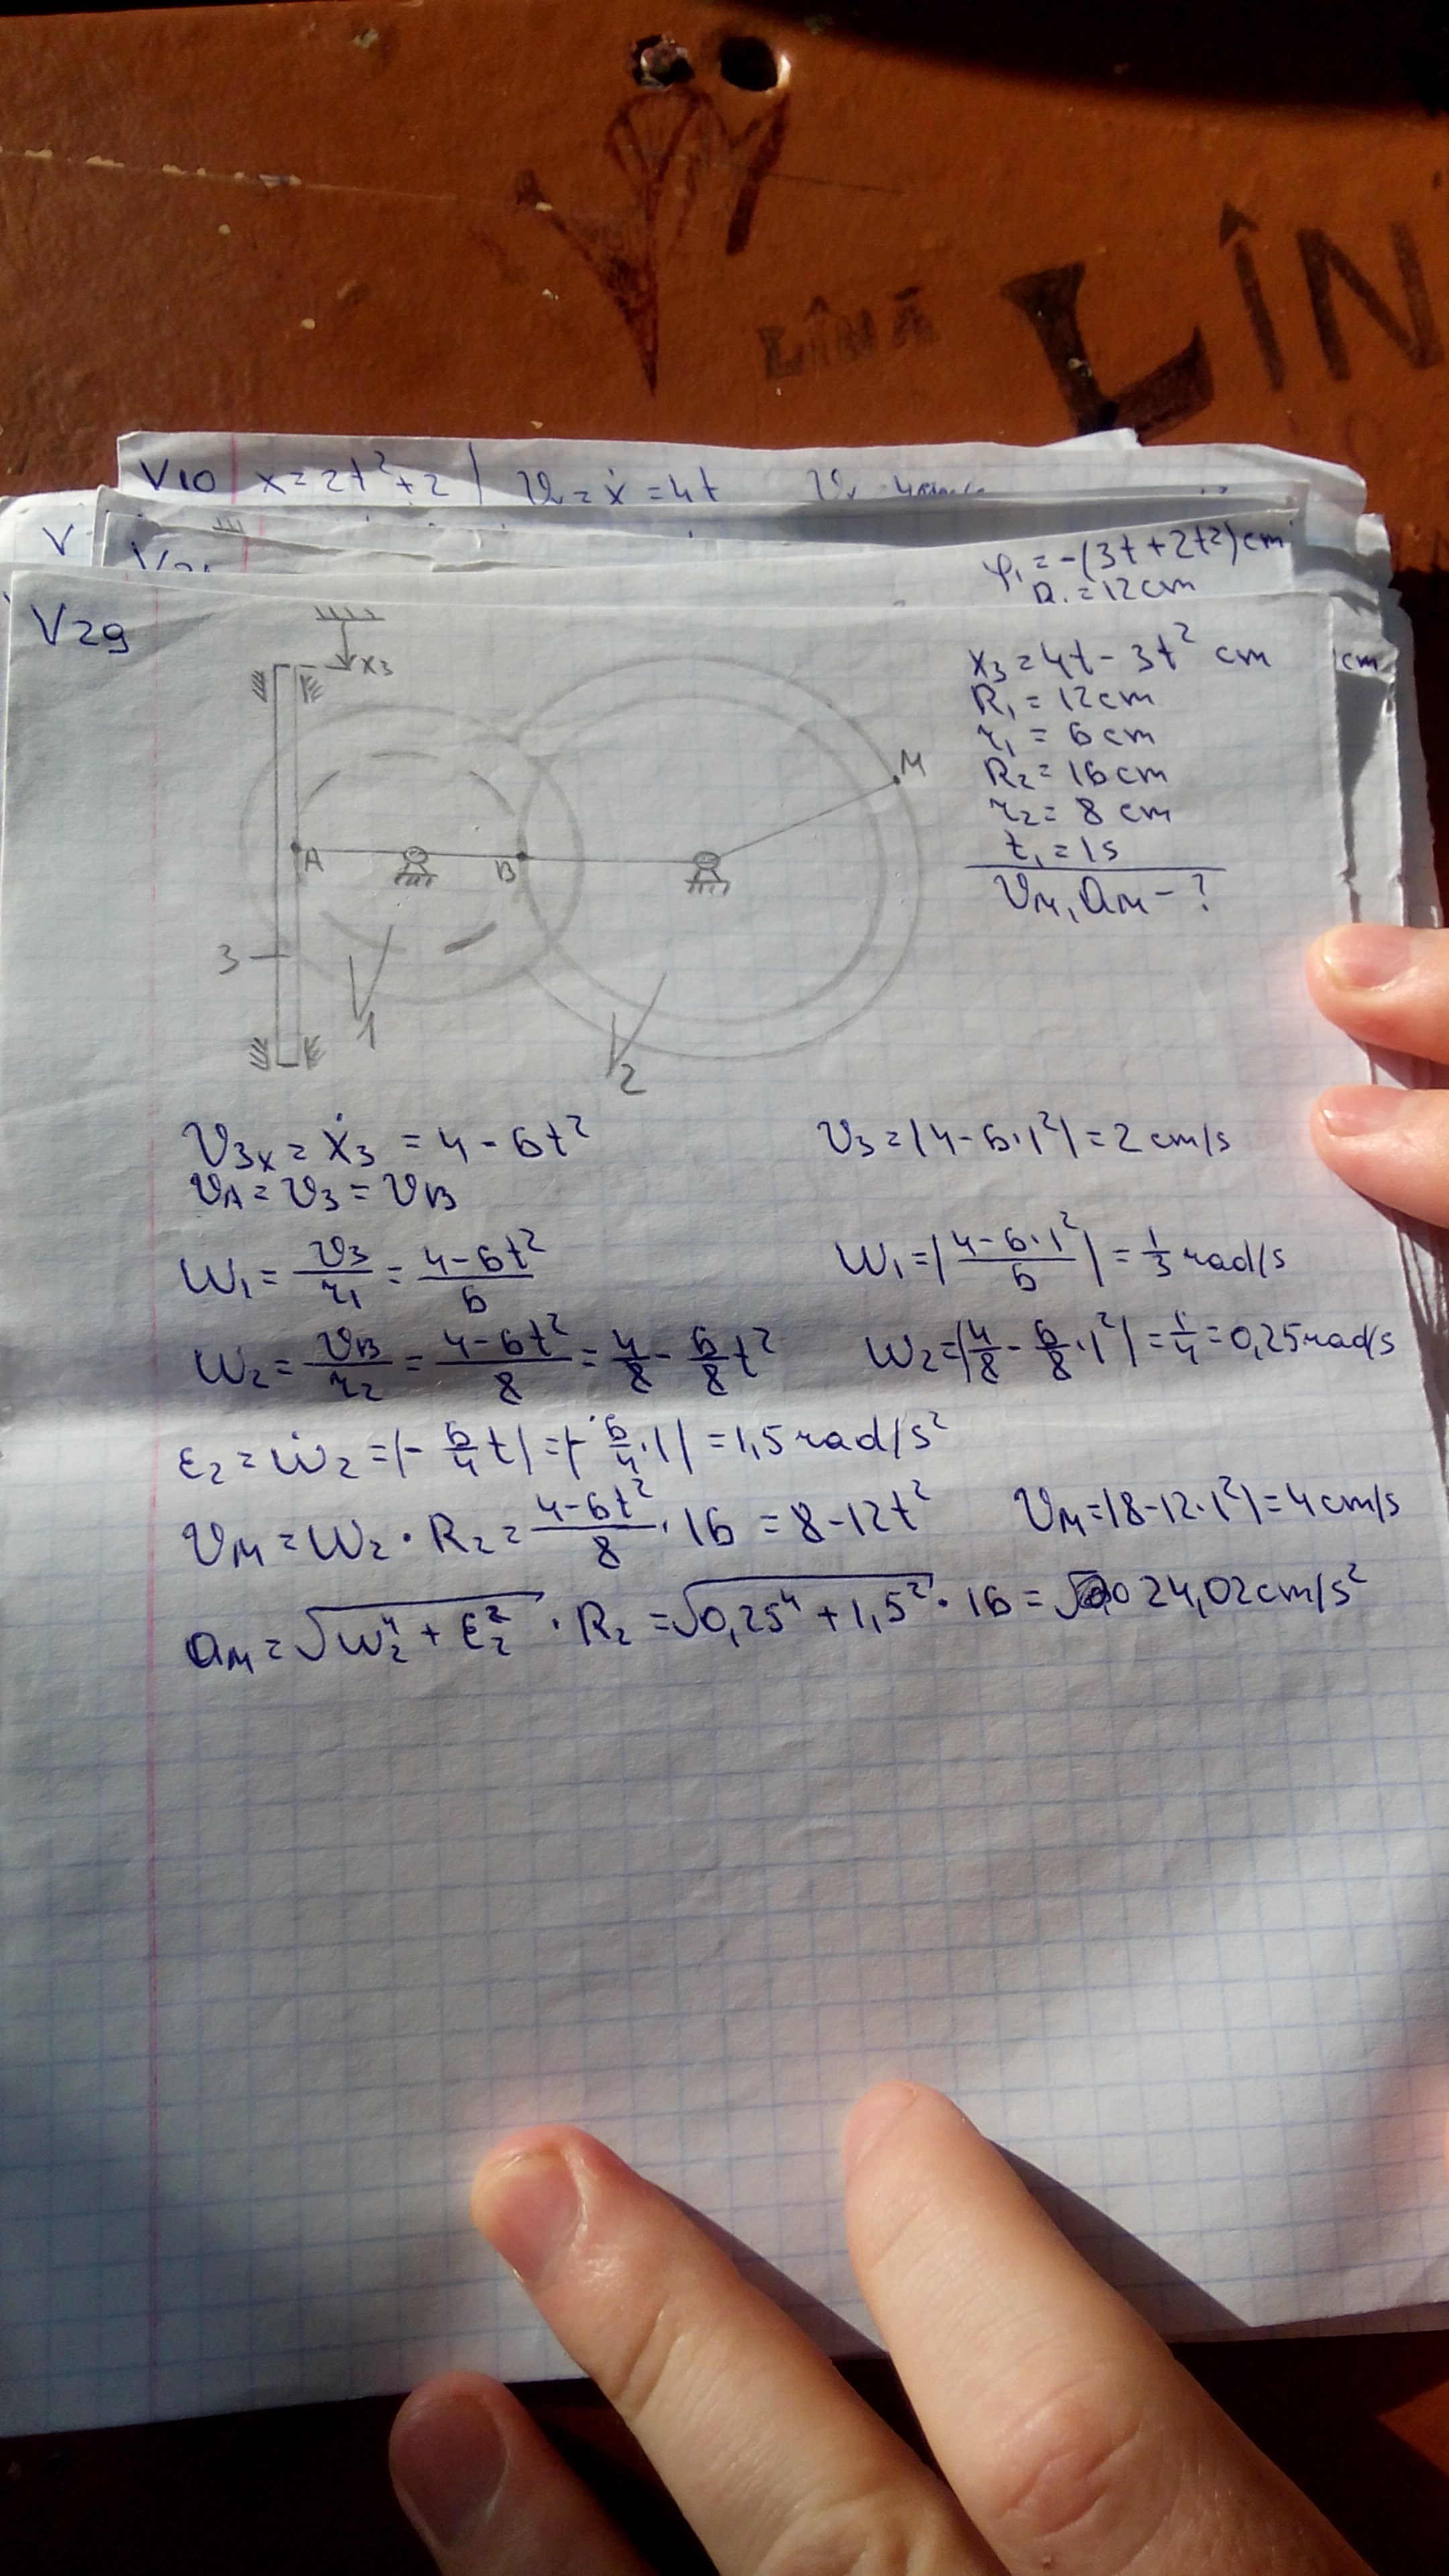 LÎNĀ
LÎN
V10 x=2t²+2 v=ẋ=4t
V
φ₁=-(3t+2t²)cm
R₁=12cm
V29
x₃
x₃=4t-3t² cm
cm
R₁=12cm
r₁=6cm
R₂=16cm
r₂=8cm
t₁=1s
v_M, a_M-?
M
A
B
3
1
2
v₃ₓ=ẋ₃=4-6t² v₃=|4-6·1²|=2cm/s
v_A=v₃=v_B
ω₁=v₃/r₁=(4-6t²)/6 ω₁=|(4-6·1²)/6|=1/3 rad/s
ω₂=v_B/r₂=(4-6t²)/8=4/8-6/8t² ω₂=|4/8-6/8·1²|=1/4=0,25rad/s
ε₂=ω̇₂=|-6/4t|=|-6/4·1|=1,5rad/s²
v_M=ω₂·R₂=(4-6t²)/8·16=8-12t² v_M=|8-12·1²|=4cm/s
a_M=√(ω₂⁴+ε₂²)·R₂=√(0,25⁴+1,5²)·16=24,02cm/s²